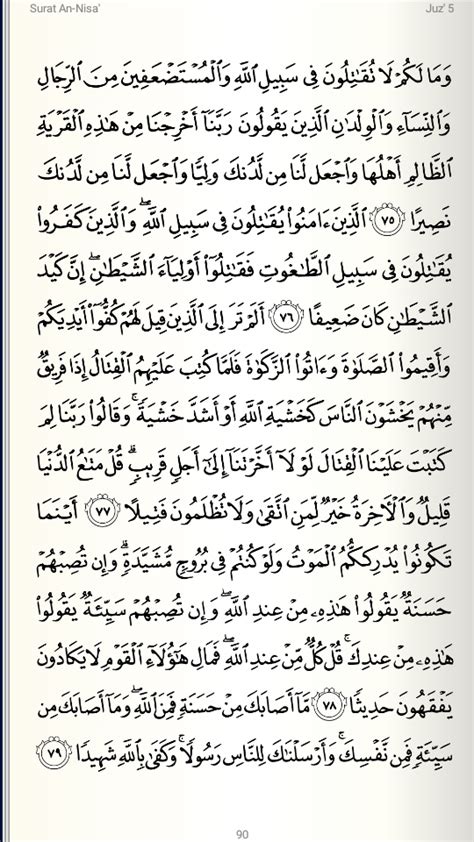 Surat An-Nisa'
Juz' 5
وَمَا لَكُمْ لَا تُقَٰتِلُونَ فِى سَبِيلِ ٱللَّهِ وَٱلْمُسْتَضْعَفِينَ مِنَ ٱلرِّجَالِ
وَٱلنِّسَآءِ وَٱلْوِلْدَٰنِ ٱلَّذِينَ يَقُولُونَ رَبَّنَآ أَخْرِجْنَا مِنْ هَٰذِهِ ٱلْقَرْيَةِ
ٱلظَّالِمِ أَهْلُهَا وَٱجْعَل لَّنَا مِن لَّدُنكَ وَلِيًّا وَٱجْعَل لَّنَا مِن لَّدُنكَ
نَصِيرًا ٧٥ ٱلَّذِينَ ءَامَنُوا۟ يُقَٰتِلُونَ فِى سَبِيلِ ٱللَّهِ ۖ وَٱلَّذِينَ كَفَرُوا۟
يُقَٰتِلُونَ فِى سَبِيلِ ٱلطَّٰغُوتِ فَقَٰتِلُوٓا۟ أَوْلِيَآءَ ٱلشَّيْطَٰنِ ۖ إِنَّ كَيْدَ
ٱلشَّيْطَٰنِ كَانَ ضَعِيفًا ٧٦ أَلَمْ تَرَ إِلَى ٱلَّذِينَ قِيلَ لَهُمْ كُفُّوٓا۟ أَيْدِيَكُمْ
وَأَقِيمُوا۟ ٱلصَّلَوٰةَ وَءَاتُوا۟ ٱلزَّكَوٰةَ فَلَمَّا كُتِبَ عَلَيْهِمُ ٱلْقِتَالُ إِذَا فَرِيقٌ
مِّنْهُمْ يَخْشَوْنَ ٱلنَّاسَ كَخَشْيَةِ ٱللَّهِ أَوْ أَشَدَّ خَشْيَةً ۚ وَقَالُوا۟ رَبَّنَا لِمَ
كَتَبْتَ عَلَيْنَا ٱلْقِتَالَ لَوْلَآ أَخَّرْتَنَآ إِلَىٰٓ أَجَلٍ قَرِيبٍ ۗ قُلْ مَتَٰعُ ٱلدُّنْيَا
قَلِيلٌ وَٱلْءَاخِرَةُ خَيْرٌ لِّمَنِ ٱتَّقَىٰ وَلَا تُظْلَمُونَ فَتِيلًا ٧٧ أَيْنَمَا
تَكُونُوا۟ يُدْرِككُّمُ ٱلْمَوْتُ وَلَوْ كُنتُمْ فِى بُرُوجٍ مُّشَيَّدَةٍ ۗ وَإِن تُصِبْهُمْ
حَسَنَةٌ يَقُولُوا۟ هَٰذِهِۦ مِنْ عِندِ ٱللَّهِ ۖ وَإِن تُصِبْهُمْ سَيِّئَةٌ يَقُولُوا۟
هَٰذِهِۦ مِنْ عِندِكَ ۚ قُلْ كُلٌّ مِّنْ عِندِ ٱللَّهِ ۖ فَمَالِ هَٰٓؤُلَآءِ ٱلْقَوْمِ لَا يَكَادُونَ
يَفْقَهُونَ حَدِيثًا ٧٨ مَّآ أَصَابَكَ مِنْ حَسَنَةٍ فَمِنَ ٱللَّهِ ۖ وَمَآ أَصَابَكَ مِن
سَيِّئَةٍ فَمِن نَّفْسِكَ ۚ وَأَرْسَلْنَٰكَ لِلنَّاسِ رَسُولًا ۚ وَكَفَىٰ بِٱللَّهِ شَهِيدًا ٧٩
90